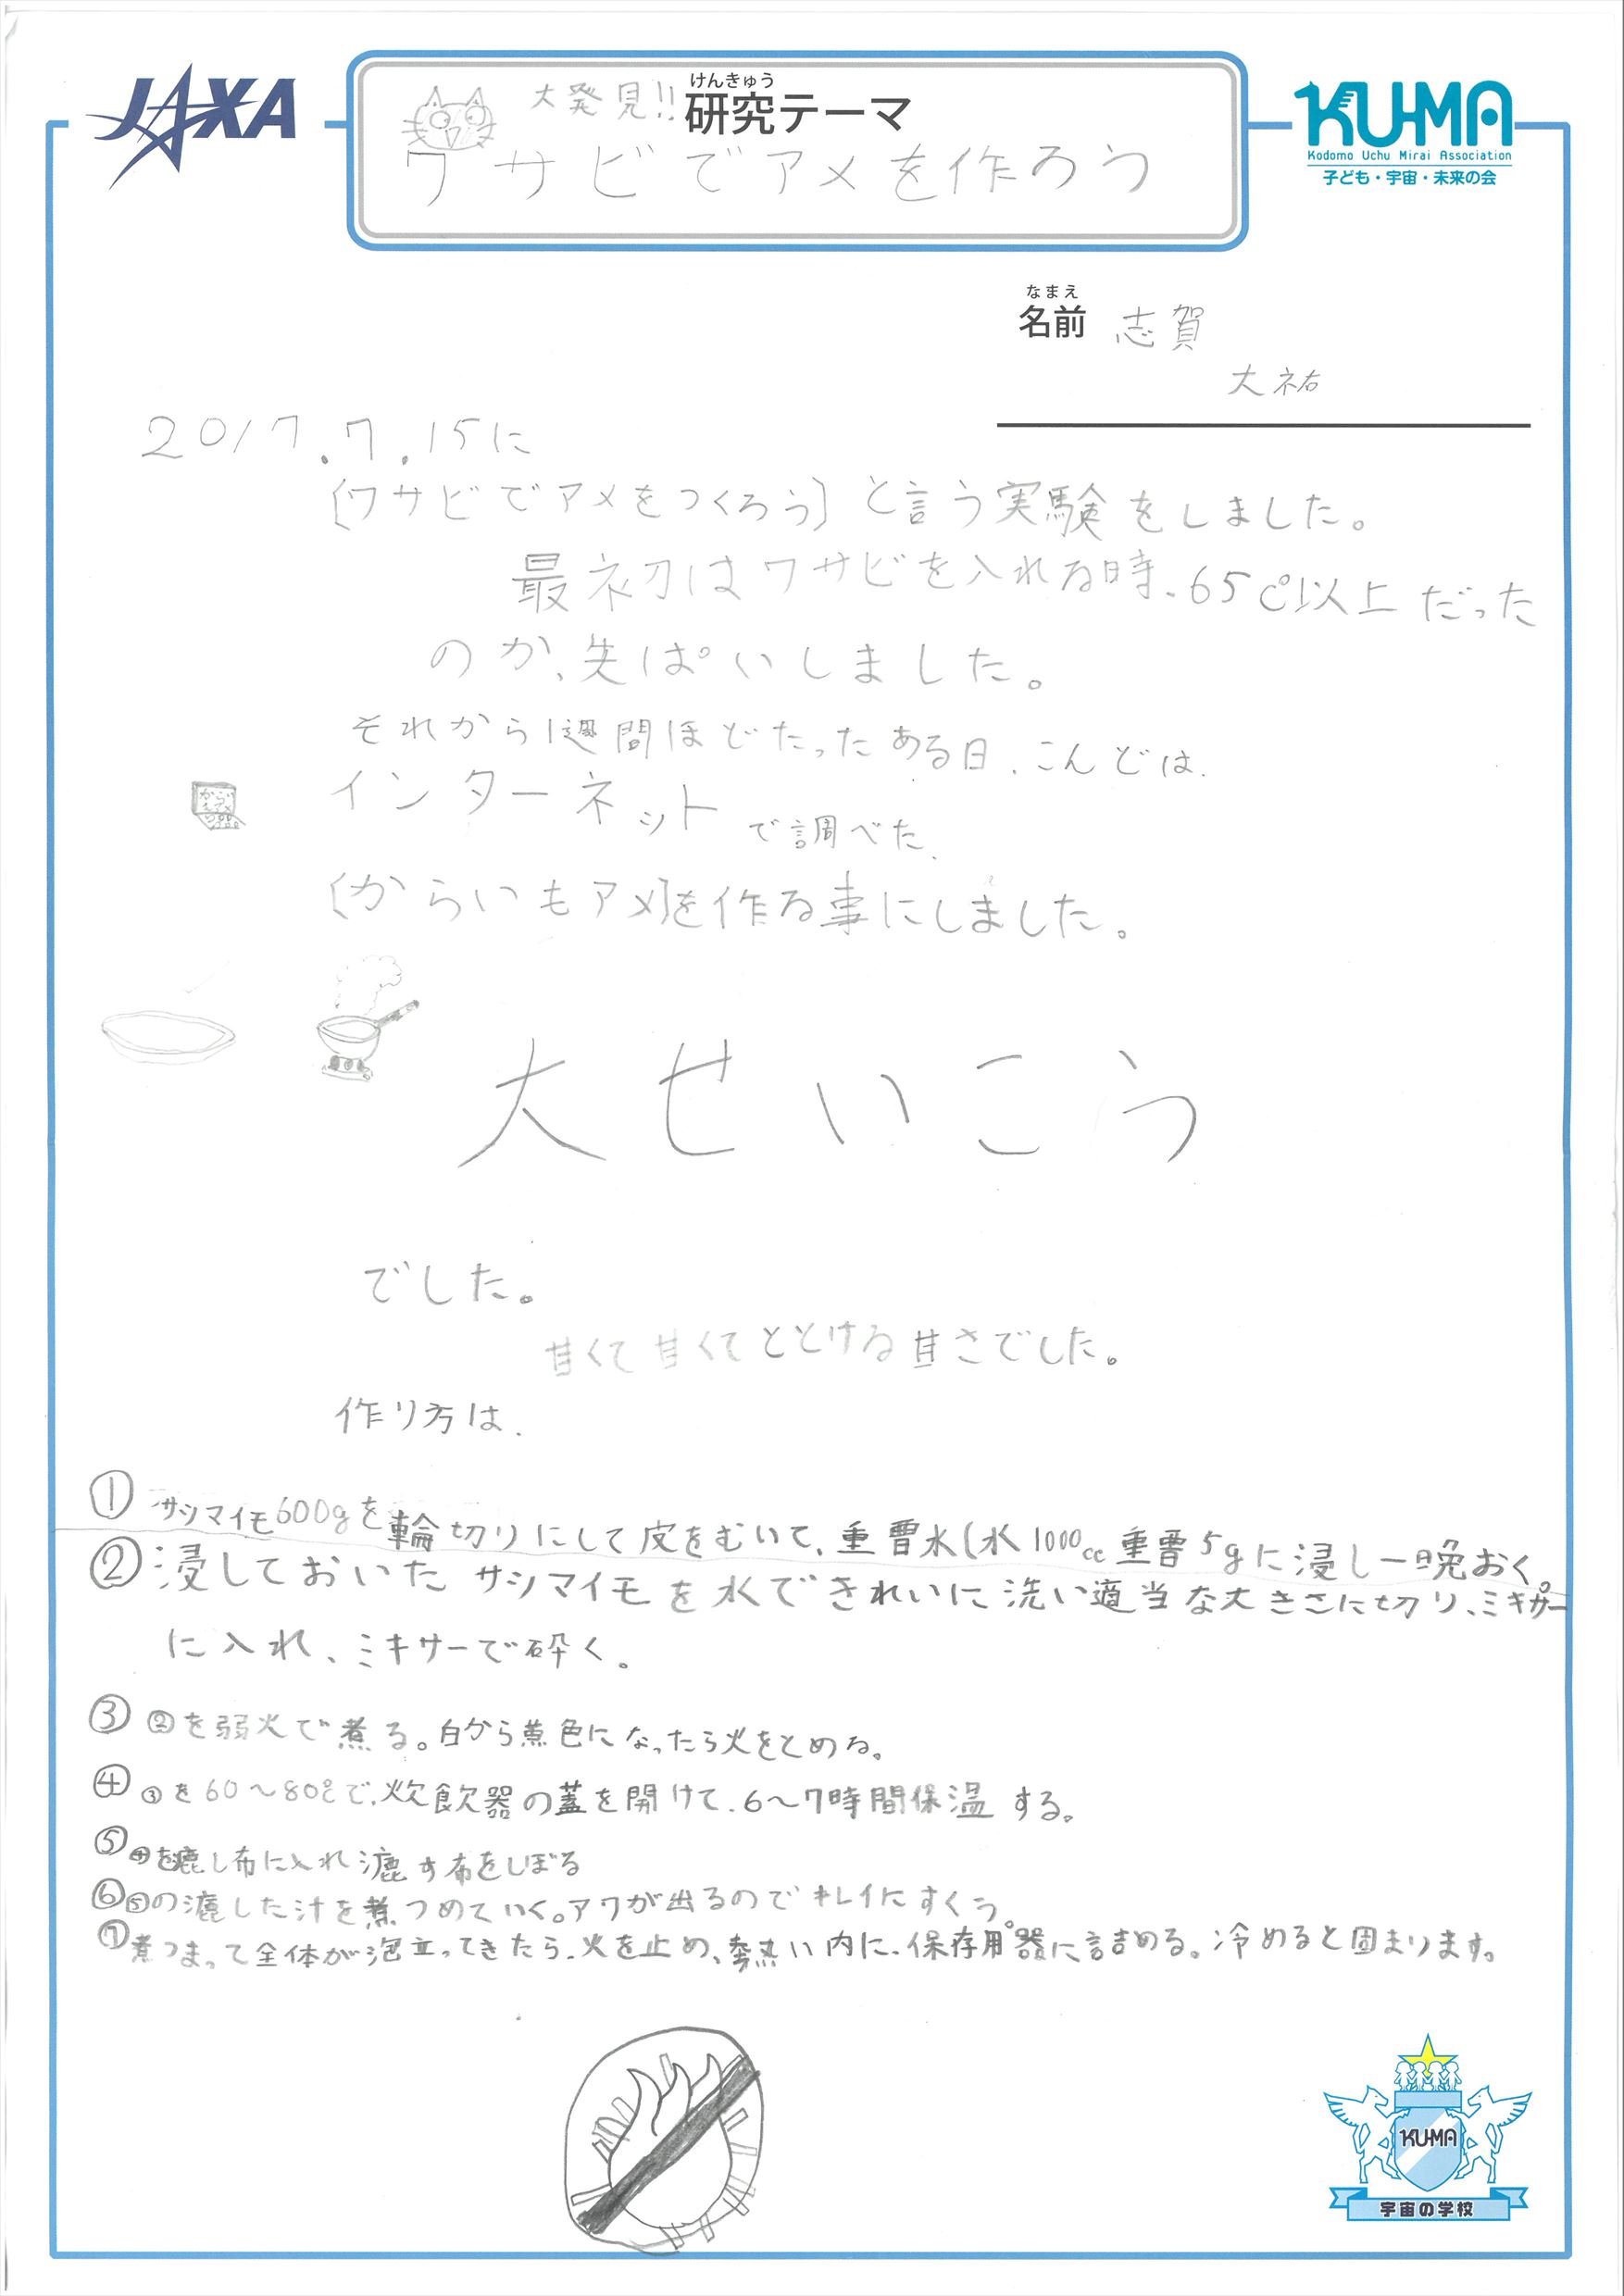 JAXA
けんきゅう
大発見!! 研究テーマ
ワサビでアメを作ろう
KU-MA
Kodomo Uchu Mirai Association
子ども・宇宙・未来の会
なまえ
名前 志賀
大祐
2017.7.15に
〔ワサビでアメをつくろう〕と言う実験をしました。
最初はワサビを入れる時、65℃以上だった
のか、失ぱいしました。
それから1週間ほどたったある日、こんどは、
インターネットで調べた、
〔からいもアメ〕を作る事にしました。
大せいこう
でした。
甘くて甘くてととける甘さでした。
作り方は、
① サツマイモ600gを輪切りにして皮をむいて、重曹水(水1000cc重曹5gに浸し一晩おく。
② 浸しておいたサツマイモを水できれいに洗い適当な大きさに切り、ミキサー
に入れ、ミキサーで砕く。
③ ②を弱火で煮る。白から黄色になったら火をとめる。
④ ③を60〜80℃で、炊飲器の蓋を開けて、6〜7時間保温する。
⑤ ④を漉し布に入れ漉す布をしぼる
⑥ ⑤の漉した汁を煮つめていく。アワが出るのでキレイにすくう。
⑦ 煮つまって全体が泡立ってきたら、火を止め、熱い内に、保存用器に詰める。冷めると固まります。
KU-MA
宇宙の学校